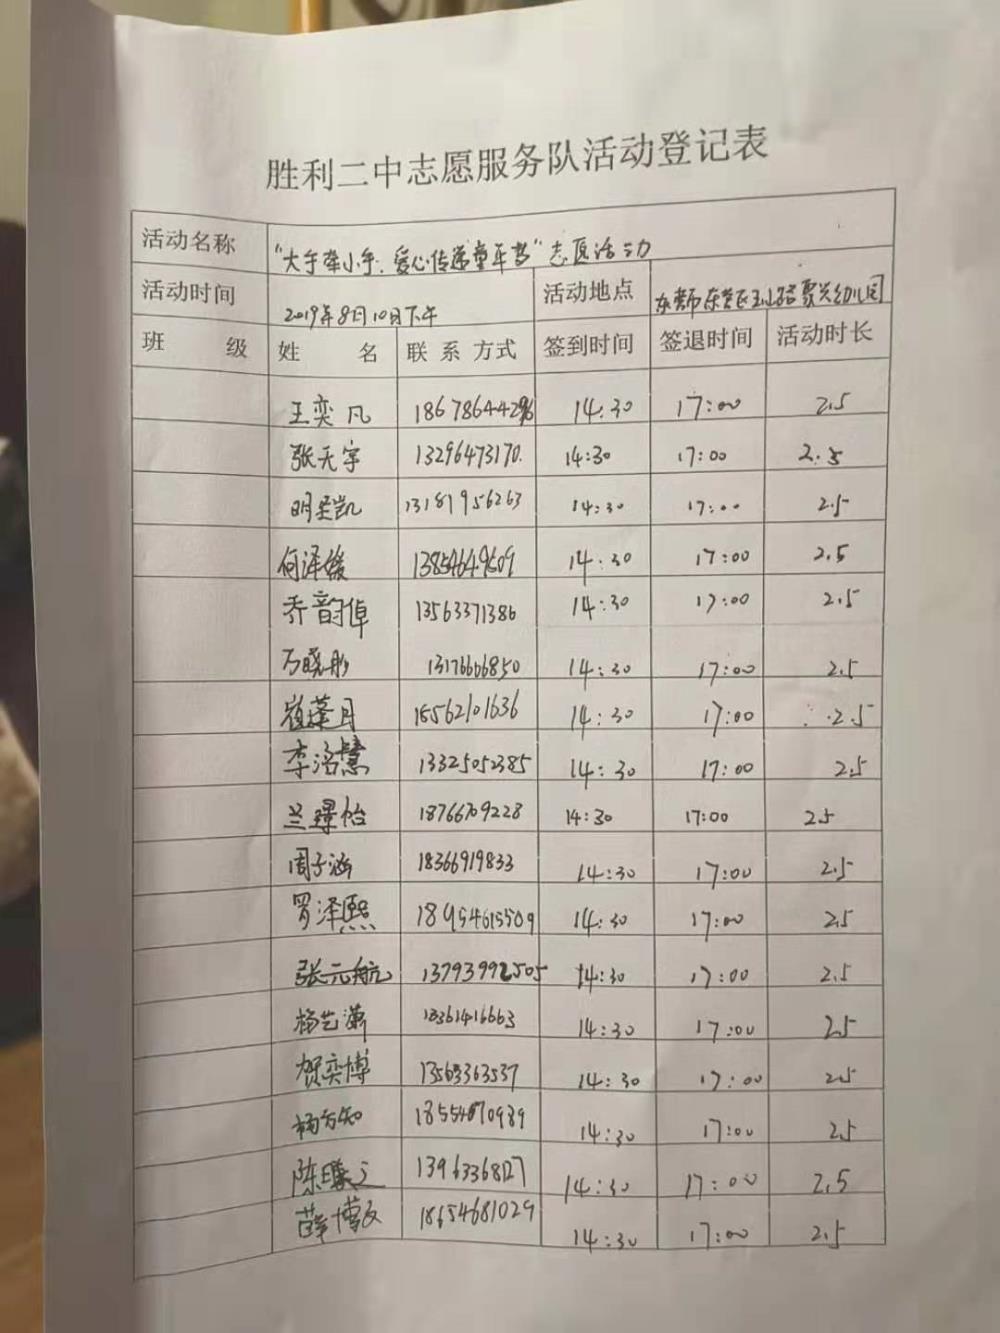 胜利二中志愿服务队活动登记表
活动名称 "大手牵小手,爱心传递童年梦"志愿活动
活动时间 2019年8月10日下午 活动地点 东营市东营区 聚兴幼儿园
班 级 姓 名 联 系 方式 签到时间 签退时间 活动时长
王奕凡 14:30 17:00 2.5
张天宇 13296473170. 14:30 17:00 2.5
明圣凯 13181956263 14:30 17:00 2.5
何泽媛 13854649609 14:30 17:00 2.5
乔韵倬 13563371386 14:30 17:00 2.5
万晓彤 13176606850 14:30 17:00 2.5
崔蓬月 15562101636 14:30 17:00 2.5
李洺慧 13325052385 14:30 17:00 2.5
兰 怡 18766709228 14:30 17:00 2.5
周子涵 18366919833 14:30 17:00 2.5
罗泽熙 18954615509 14:30 17:00 2.5
张元航 13793992505 14:30 17:00 2.5
杨艺潇 14:30 17:00 2.5
贺奕博 13563363537 14:30 17:00 2.5
杨方知 14:30 17:00 2.5
陈 14:30 17:00 2.5
薛博文 18654681029 14:30 17:00 2.5